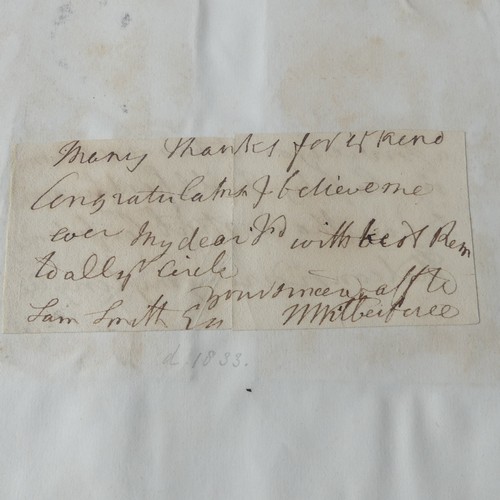 Many thanks for yr kind
Congratulatns & believe me
ever My dear Sr with best Rem
to all yr Circle
Yours sincerely afft
Sam Smith Esq W Wilberforce
d. 1833.